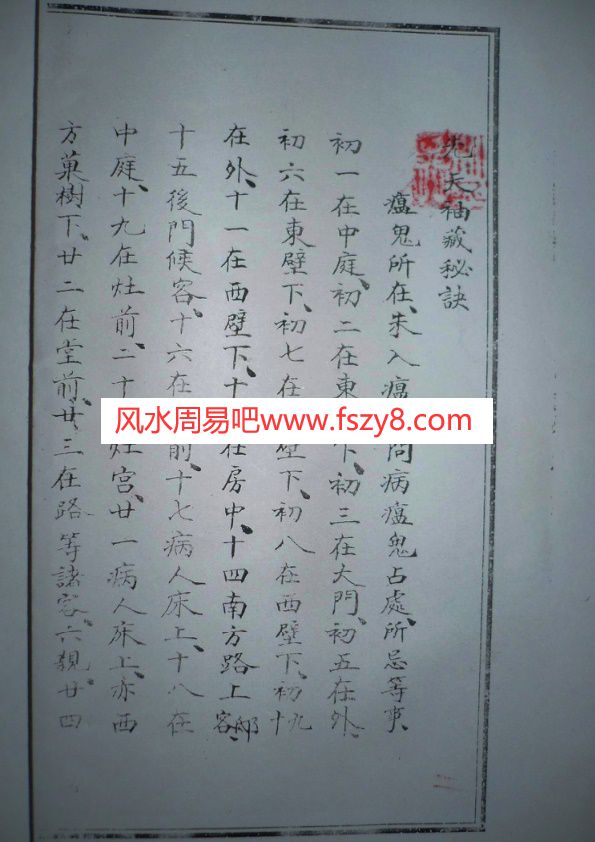 先天袖藏秘訣
瘟鬼所在、未入瘟 問病瘟鬼占處、所忌等事、
初一在中庭、初二在東 下、初三在大門、初五在外、
初六在東壁下、初七在 壁下、初八在西壁下、初九十
在外、十一在西壁下、十 在房中、十四南方路上 客、
十五後門候客、十六在 前、十七病人床上、十八在
中庭、十九在灶前、二十 灶宫、廿一病人床上、亦西
方菓樹下、廿二在堂前、廿三在路等諸客、六親、廿四
风水周易吧www.fszy8.com